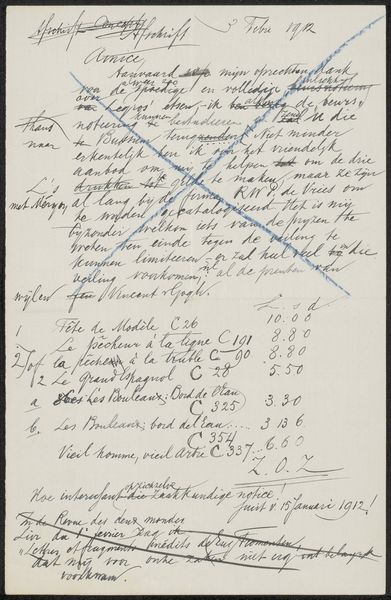 Afschrift Concept Afschrift
3 Febr 1912
Amice,
Aanvaard mijn oprechten dank
voor de spoedige en volledige
over Legros' etsen, ik de beurs
Thans noteering kunnen bestudeeren die
naar te Bussum terug Niet minder
erkentelijk ben ik voor het vriendelijk
aanbod om mij te helpen om de drie
L.'s te maken, maar ze zijn
met Meryon, al lang bij de firma R.W.P. de Vries om
te worden gecatalogiseerd Het is mij
bijzonder welkom iets van de prijzen te
weten ten einde tegen de veiling te
kunnen limiteeren er zal heel veel in die
veiling voorkomen, al de prenten van
wijlen Vincent v Gogh.
L. s. d.
1 Tête de Modèle C 26 10.0.0
Le pêcheur à la ligne C 191 8.8.0
2) of la pêche à la truble C 90 8.8.0
2 Le Grand Espagnol C 28 5.5.0
a Les Bouleaux; Bord de l'eau
C 325 3.3.0
b. Les Bouleaux; bord de l'eau.... 3 13 6
C 354
Vieil homme, vieil arbre C 337.. 6.6.0
Z.O.Z
Hoe interessant zaakkundige notice!
Juist v. 15 Januari 1912!
In de Revue des deux mondes
Livr du 1 janvier
"Lettres et fragments inédits de Eug Fromentin"
dat mij voor onze niet erg belangrijk
voorkwam.